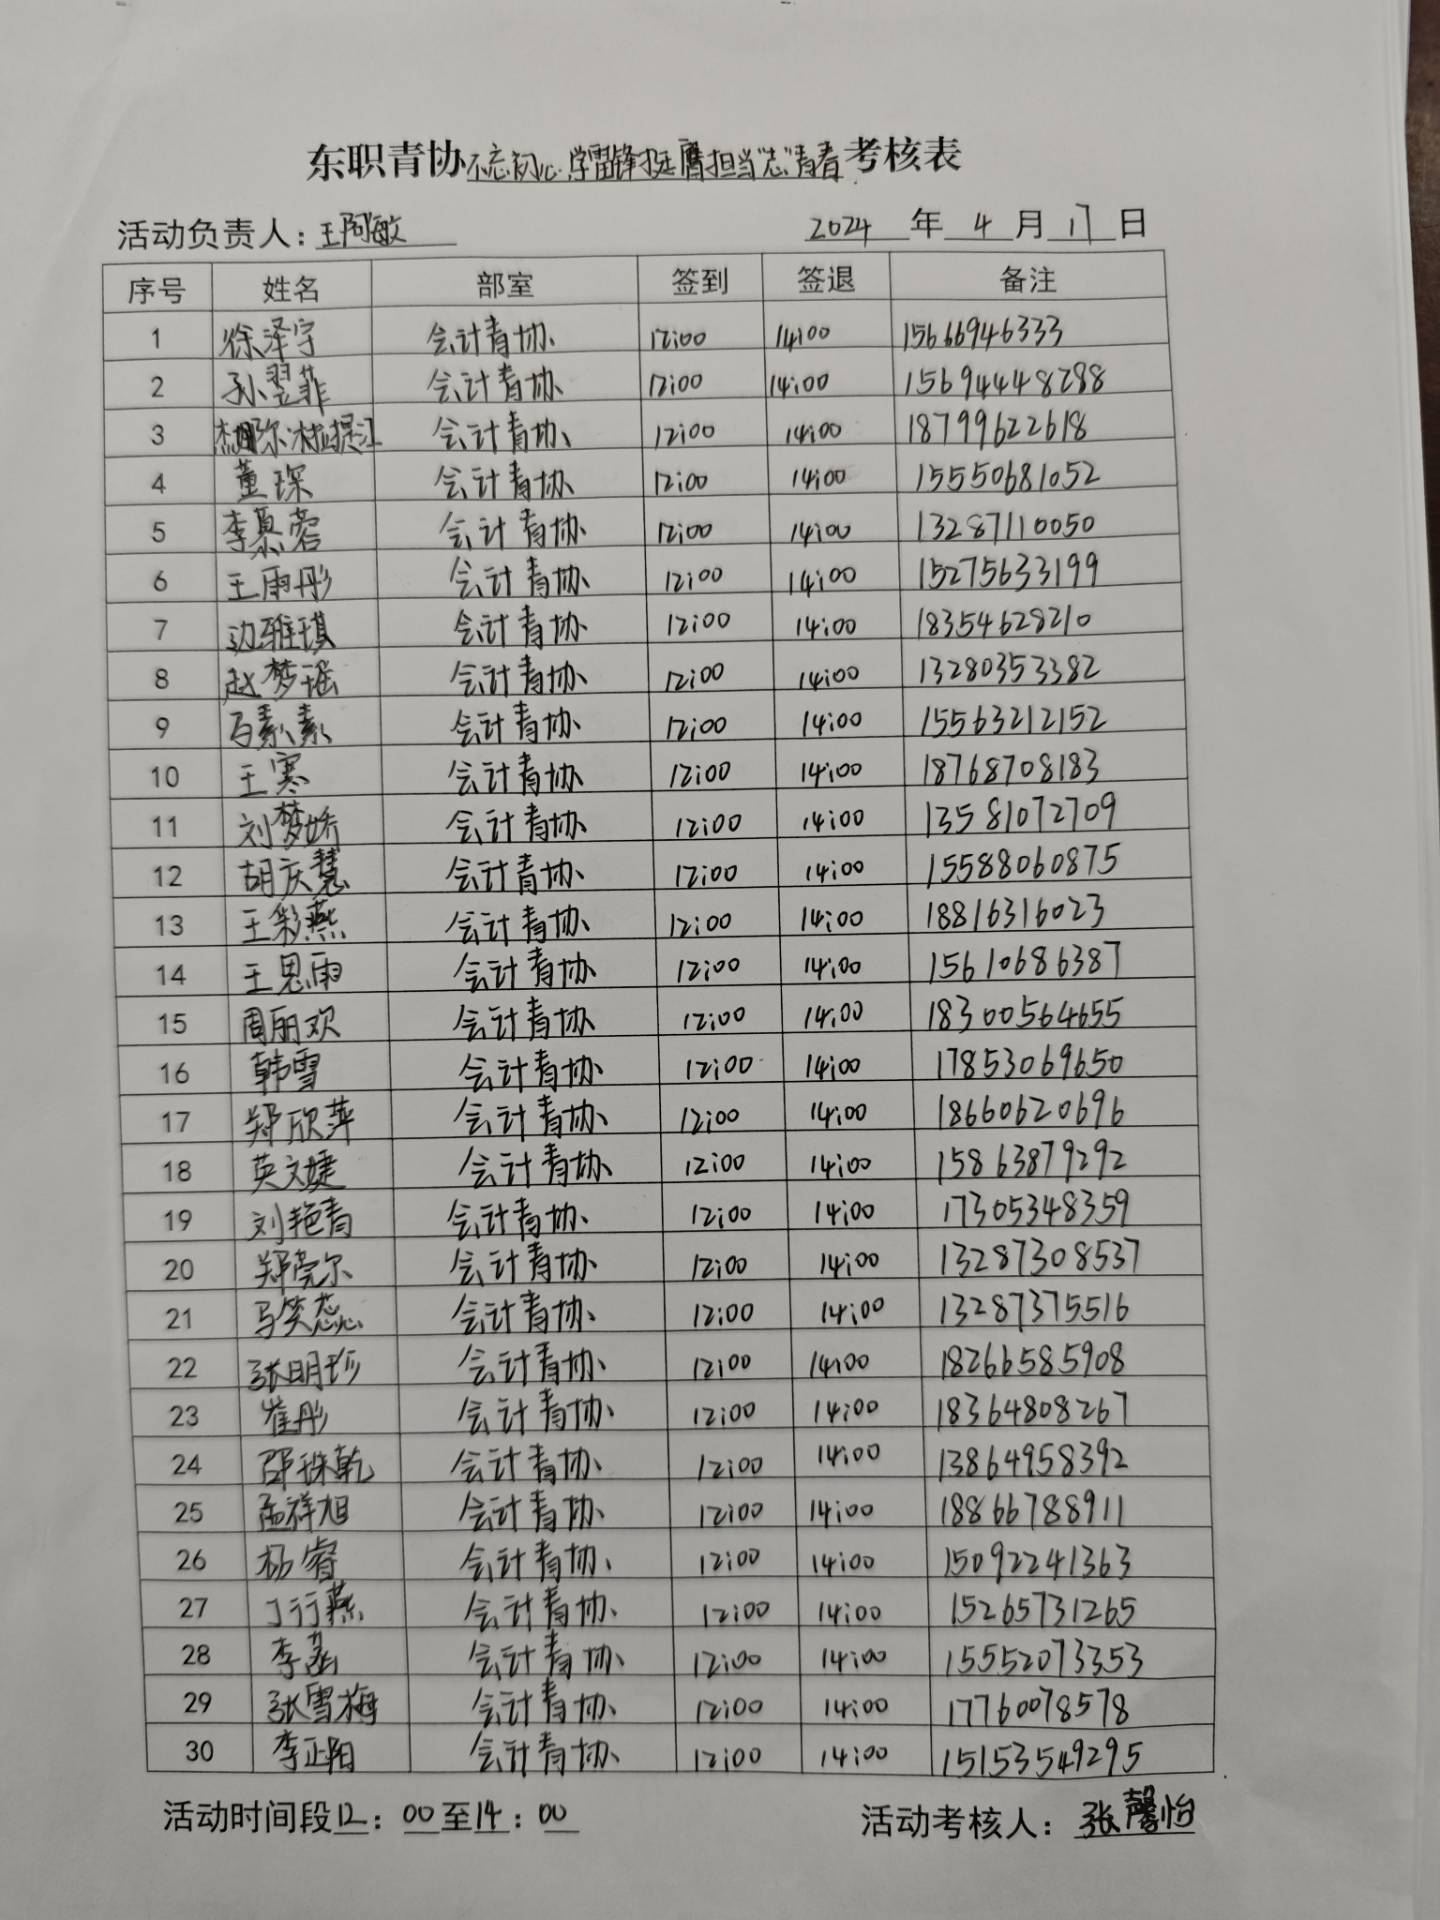 东职青协不忘初心学雷锋挺膺担当"志"青春考核表
活动负责人:王阿敏 2024年4月17日
序号 姓名 部室 签到 签退 备注
1 徐泽宇 会计青协 12:00 14:00 15666946333
2 孙翌菲 会计青协 12:00 14:00 15694448288
3 会计青协 12:00 14:00 18799622618
4 董琛 会计青协 12:00 14:00 15550681052
5 李慕蓉 会计青协 12:00 14:00 13287110050
6 王雨彤 会计青协 12:00 14:00 15275633199
7 边雅琪 会计青协 12:00 14:00 18354628210
8 赵梦瑶 会计青协 12:00 14:00 13280353382
9 马素素 会计青协 12:00 14:00 15563212152
10 王寒 会计青协 12:00 14:00 18768708183
11 刘梦娇 会计青协 12:00 14:00 13581072709
12 胡庆慧 会计青协 12:00 14:00 15588060875
13 王彩燕 会计青协 12:00 14:00 18816316023
14 王思雨 会计青协 12:00 14:00 15610686387
15 周丽欢 会计青协 12:00 14:00 18300564655
16 韩雪 会计青协 12:00 14:00 17853069650
17 郑欣萍 会计青协 12:00 14:00 18660620696
18 英文婕 会计青协 12:00 14:00 15863879292
19 刘艳青 会计青协 12:00 14:00 17305348359
20 郑莞尔 会计青协 12:00 14:00 13287308537
21 马笑蕊 会计青协 12:00 14:00 13287375516
22 张明珍 会计青协 12:00 14:00 18266585908
23 崔彤 会计青协 12:00 14:00 18364808267
24 邵珠乾 会计青协 12:00 14:00 13864958392
25 孟祥旭 会计青协 12:00 14:00 18866788911
26 杨睿 会计青协 12:00 14:00 15092241363
27 丁行燕 会计青协 12:00 14:00 15265731265
28 李菡 会计青协 12:00 14:00 15552073353
29 张雪梅 会计青协 12:00 14:00 17760078578
30 李正阳 会计青协 12:00 14:00 15153549295
活动时间段12:00至14:00 活动考核人:张馨怡